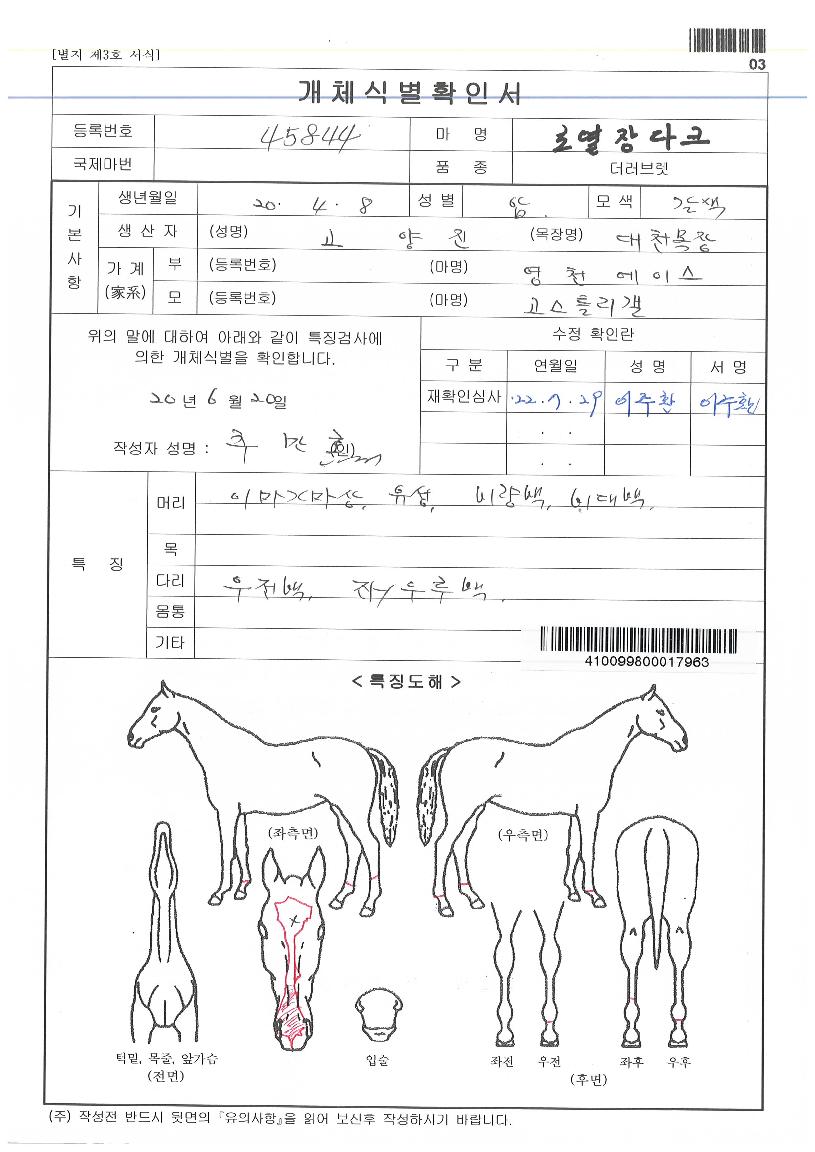 [별지 제3호 서식]
03
개체식별확인서
등록번호 45844 마 명 로열장다크
국제마번 품 종 더러브렛
기본사항
생년월일 20. 4. 8 성별 암. 모색 갈색
생산자 (성명) 고 양 진 (목장명) 대천목장
가계 (家系) 부 (등록번호) (마명) 영천에이스
모 (등록번호) (마명) 고스틀리갤
위의 말에 대하여 아래와 같이 특징검사에
의한 개체식별을 확인합니다.
20년 6월 20일
작성자 성명 : (인)
수정 확인란
구분 연월일 성명 서명
재확인심사 .22.7.29 이주환 이주환
. .
. .
특 징
머리 이마가마상, 유성, 비량백, 비대백,
목
다리 우전백, 좌/우후백.
몸통
기타
410099800017963
< 특징도해 >
(좌측면)
(우측면)
턱밑, 목줄, 앞가슴
(전면)
입술
좌전 우전 좌후 우후
(후면)
(주) 작성전 반드시 뒷면의 『유의사항』을 읽어 보신후 작성하시기 바랍니다.